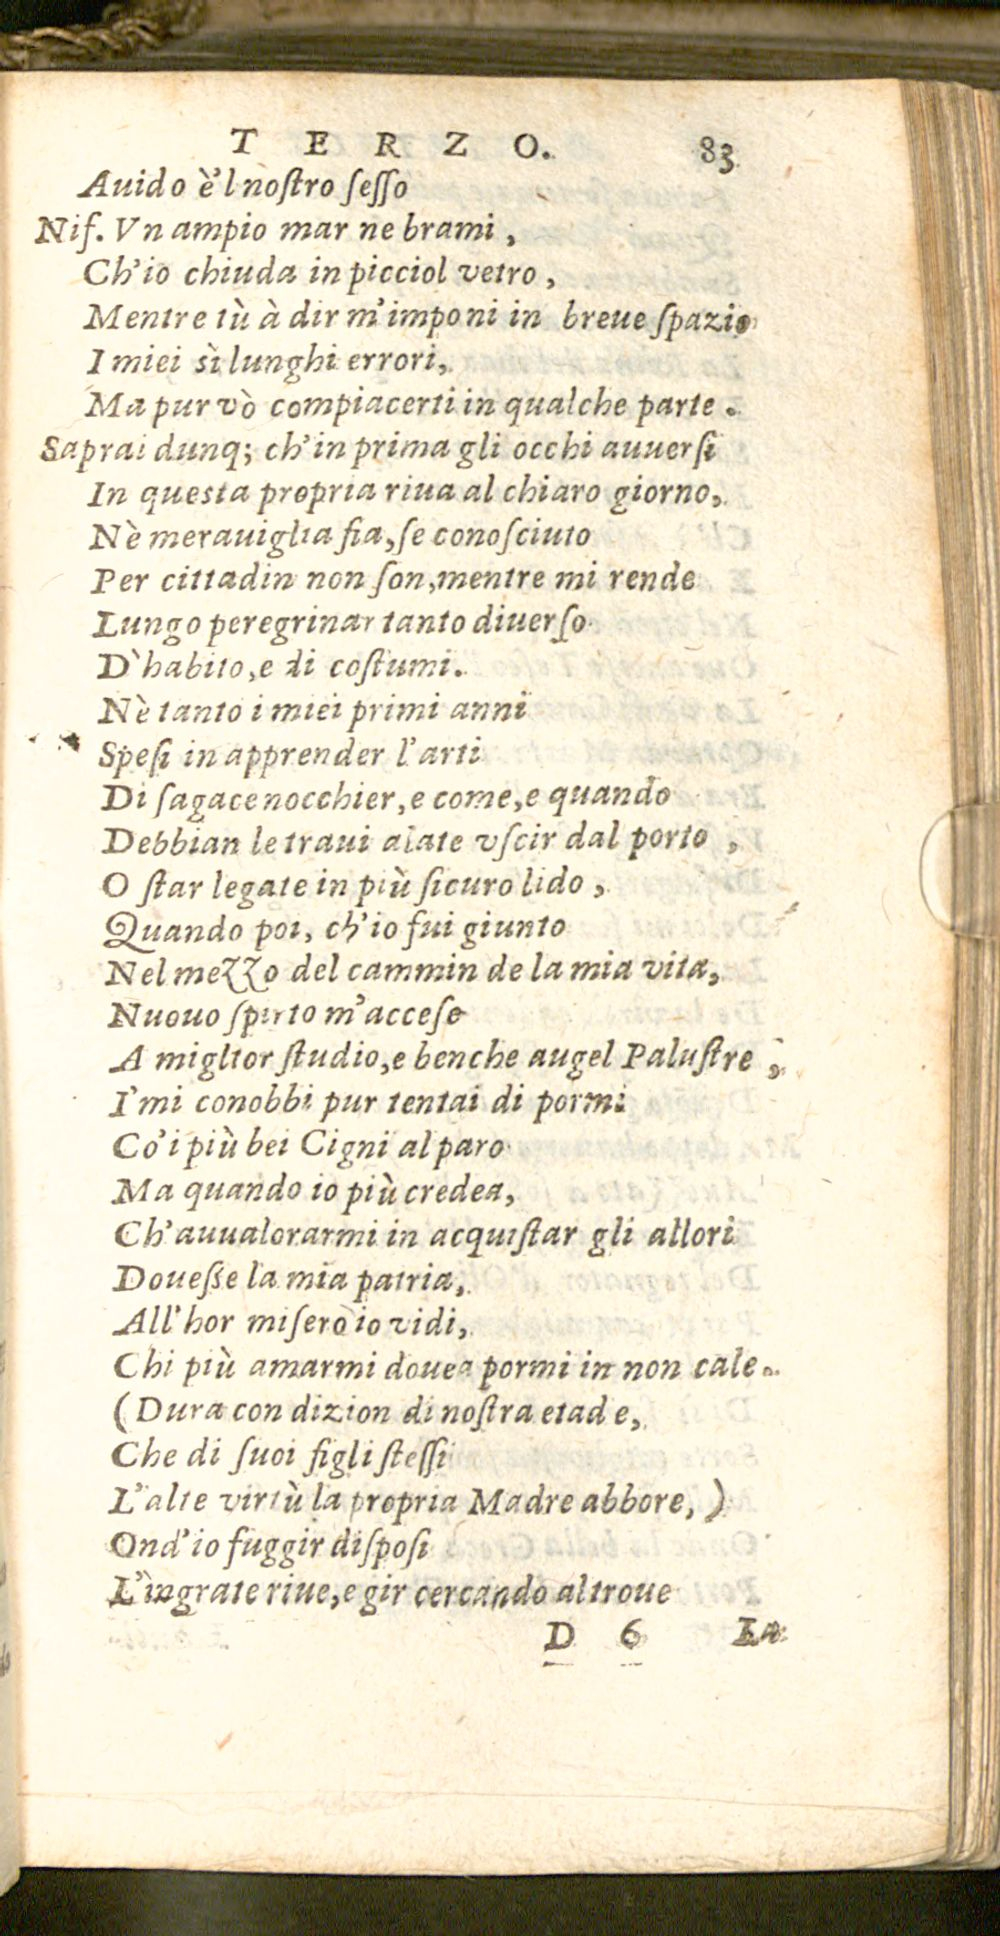 TERZO. 83
Auido è'l noſtro ſeſſo
Niſ. Vn ampio mar ne brami,
Ch'io chiuda in picciol vetro,
Mentre tù à dir m'imponi in breue ſpazio
I miei sì lunghi errori,
Ma pur vò compiacerti in qualche parte.
Saprai dunq; ch'in prima gli occhi auuerſi
In questa propria riua al chiaro giorno,
Nè merauiglia fia, ſe conoſciuto
Per cittadin non ſon, mentre mi rende
Lungo peregrinar tanto diuerſo
D'habito, e di coſtumi.
Nè tanto i miei primi anni
Speſi in apprender l'arti
Di ſagace nocchier, e come, e quando
Debbian le traui alate vſcir dal porto,
O ſtar legate in più ſicuro lido,
Quando poi, ch'io fui giunto
Nel mezzo del cammin de la mia vita,
Nuouo ſpirto m'acceſe
A miglior ſtudio, e benche augel Paluſtre,
I'mi conobbi pur tentai di pormi
Co'i più bei Cigni al paro
Ma quando io più credea,
Ch'auualorarmi in acquiſtar gli allori
Doueſſe la mia patria,
All'hor miſero io vidi,
Chi più amarmi douea pormi in non cale.
(Dura condizion di noſtra etade,
Che di ſuoi figli ſteſſi
L'alte virtù la propria Madre abbore,)
Ond'io fuggir diſpoſi
L'ingrate riue, e gir cercando altroue
D 6 La